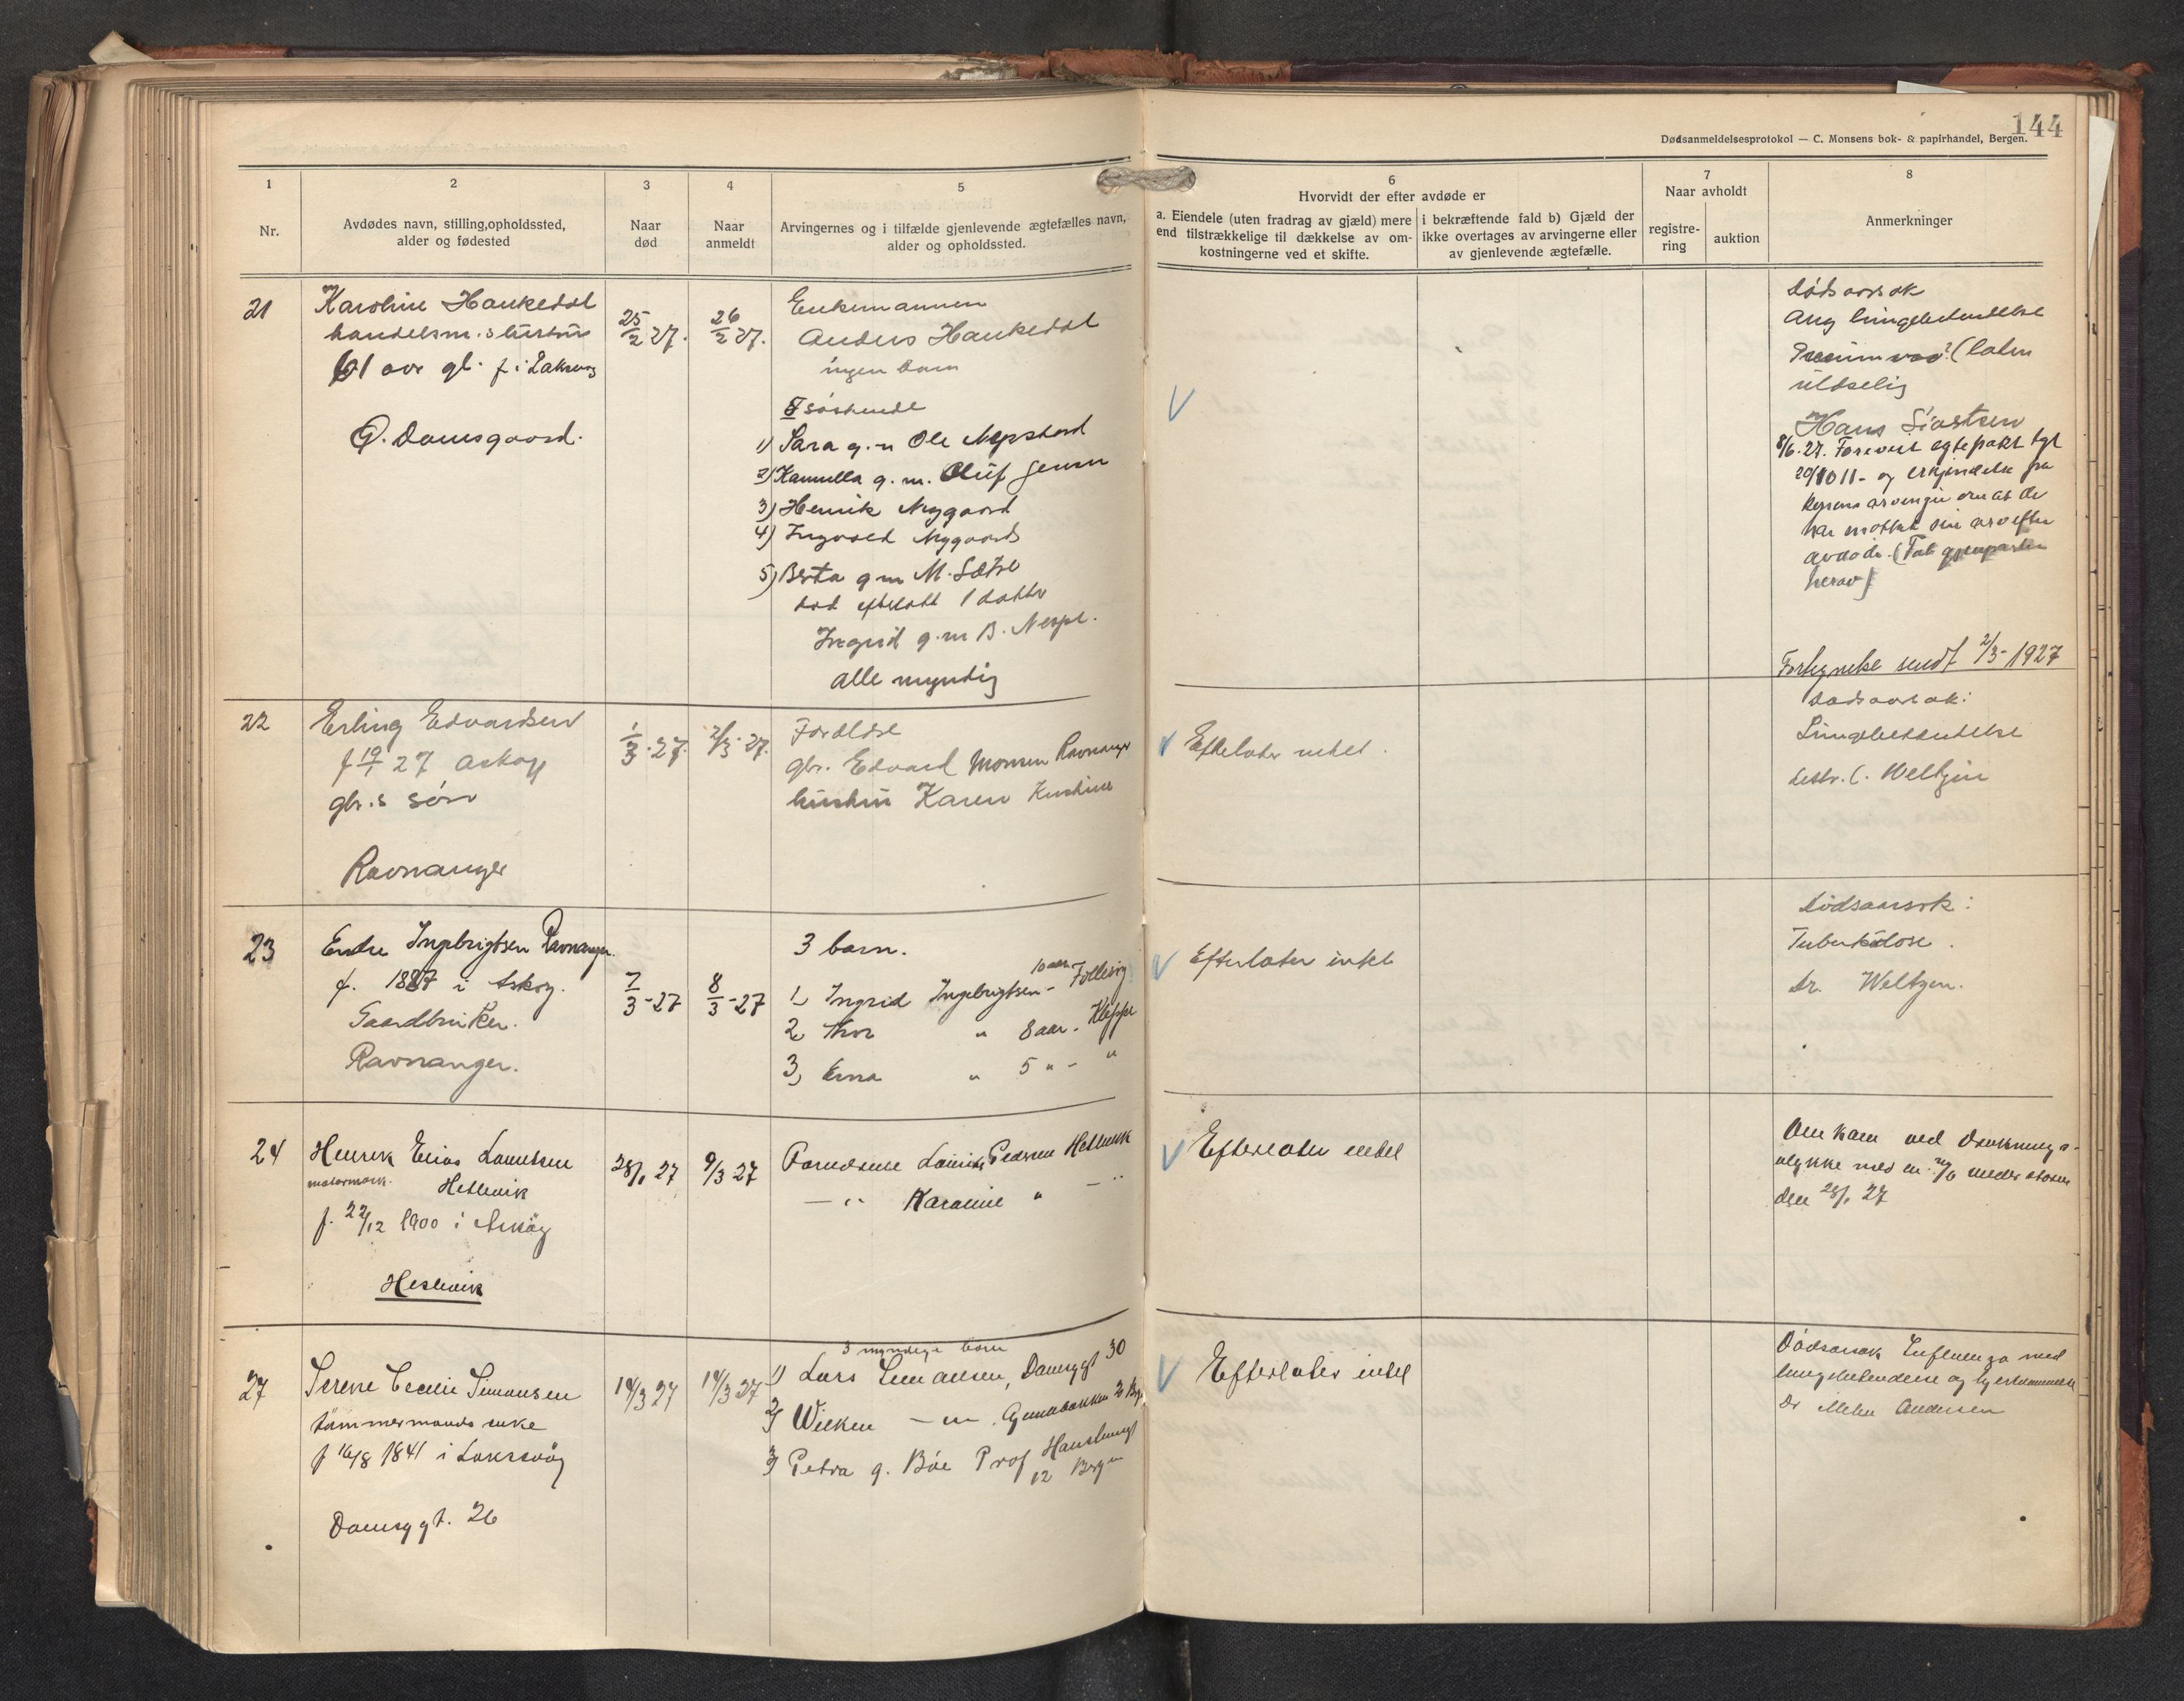 144
Dødsanmeldelsesprotokol — C. Monsens bok- & papirhandel, Bergen.
1
Nr.
2
Avdødes navn, stilling, opholdssted,
alder og fødested
3
Naar
død
4
Naar
anmeldt
5
Arvingernes og i tilfælde gjenlevende ægtefælles navn,
alder og opholdssted.
6
Hvorvidt der efter avdøde er
a. Eiendele (uten fradrag av gjæld) mere
end tilstrækkelige til dækkelse av om-
kostningerne ved et skifte.
i bekræftende fald b) Gjæld der
ikke overtages av arvingerne eller
av gjenlevende ægtefælle.
7
Naar avholdt
registre-
ring
auktion
8
Anmerkninger
21
Karoline Haukedal
handelsm.s hustru
61 aar gl. f i Laksevg
G. Damsgaard.
25/2 27.
26/2 27.
Enkemannen
Anders Haukedal
ingen barn
søskende
1) Sara g. m Ole
2) Kamilla g. m. Oluf Jensen
3) Henrik Nygaard
4) Ingvald Nygaard
5) Berta g m M. Sætre
død efterlatt 1 datter
Ingrid g. m B.
alle myndig
Dødsaarsak
lungebetændelse
(laten
utdselig
Hans
8/6.27. Forevist egtepakt tgl
29/10 11 - og erkjendelse fra
arvinger om at de
har mottat sin arv efter
avdøde. (Fat gjenparten
herav)
sendt 2/3-1927
22
Erling Edvardsen
f 19/1 27 Askøy
gbr.s søn
Ravnanger
1/3.27.
2/3.27.
Forældre
gbr. Edvard Monsen Ravnanger
hustru Karen
Efterlater intet.
Dødsaarsak:
Lungebetændelse
Weltzin
23
Endre Ingebrigtsen Ravnanger.
f. 1887 i Askøy.
Gaardbruker.
Ravnanger.
7/3-27
8/3-27
3 barn.
1, Ingrid Ingebrigtsen - 10 aar Follesøy
2, Thor " 8 aar. Kleppe
3, Erna " 5 " - "
Efterlater intet
Dødsaarsak:
Tuberkulose.
Dr. Weltzen.
24
Henrik Elias Lauritsen
motormask. Hetlevik
f. 22/12 1900 i Askøy
Hetlevik
28/1 27
9/3 27
Forældrene Laurits Pedersen Hetlevik
— " Karoline " — "
Efterlater intet
Omkom ved druknings-
ulykke med m. k/k
den 28/1 27
27
Serene Cecilie Simonsen
tømmermands enke
f 16/8 1841 i Laksevåg
Damsggt. 26
14/3 27
14/3 27
3 myndige barn
1) Lars Simonsen, Damsggt 30
2) Wilken — " — . 2 Bgn
3) Petra g. Bøe Prof Hansteensgt
12 Bergen
Efterlater intet
Dødsarsak Influenza med
lungebetendelse og hjertelammelse
Dr Andersen